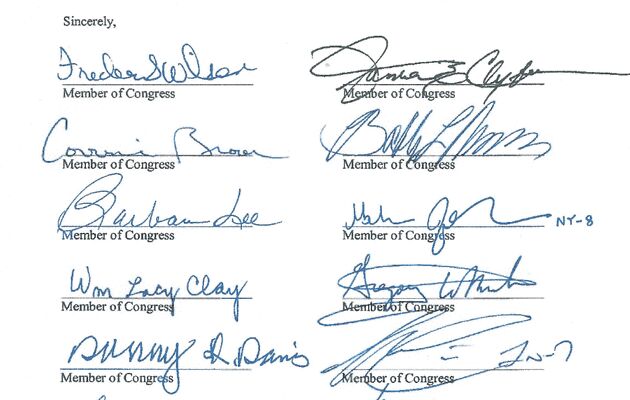 Sincerely,
Frederica S Wilson James E Clyburn
Member of Congress Member of Congress
Corrine Brown Bobby L Rush
Member of Congress Member of Congress
Barbara Lee NY-8
Member of Congress Member of Congress
Wm Lacy Clay Gregory W Meeks
Member of Congress Member of Congress
Danny K Davis IN-7
Member of Congress Member of Congress